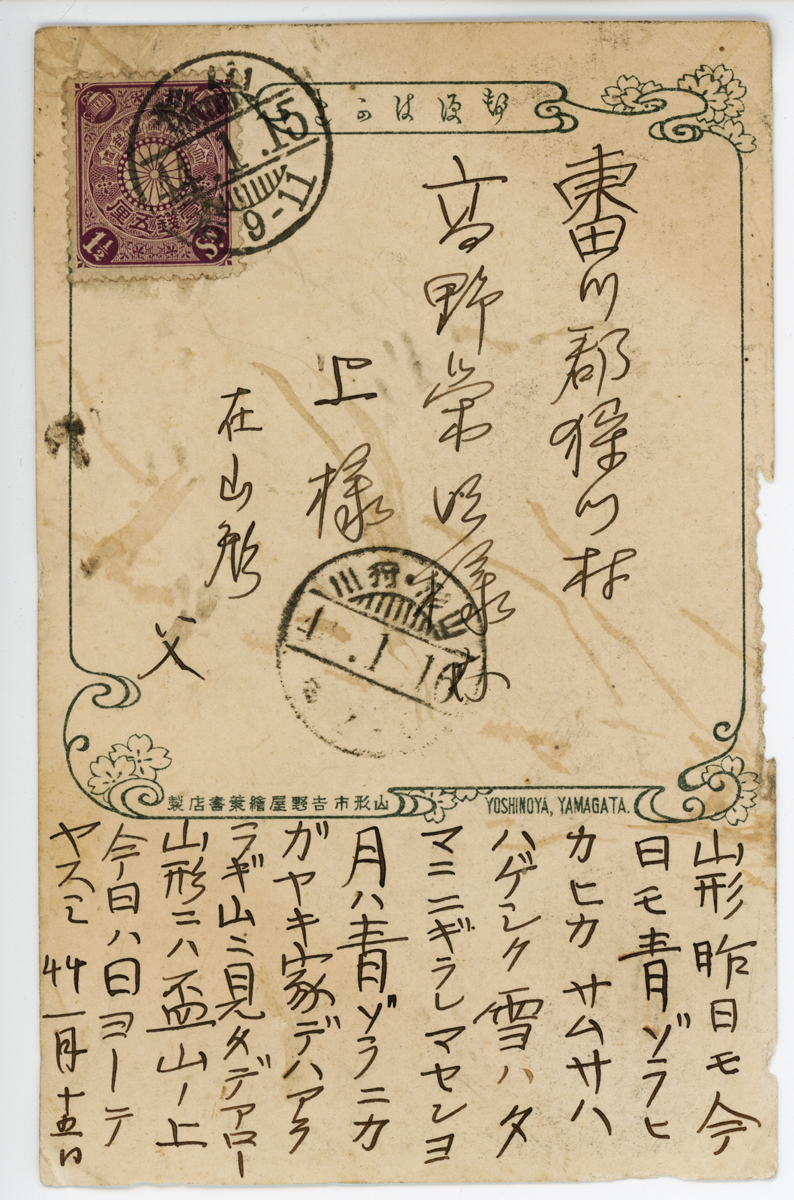 郵便はかき
東田川郡狩川村
高野栄治様
上様
在山形
父
壹錢五厘
1½ Sn.
1.15
9-11
狩川
1.16
山形市吉野屋繪葉書店製
YOSHINOYA, YAMAGATA.
山形昨日モ今
日モ青ゾラヒ
カヒカサムサハ
ハゲシク雪ハタ
マニニギラレマセンヨ
月ハ青ゾラニカ
ガヤキ家デハアラ
ラギ山ニ見タデアロー
山形ニハ盃山ノ上
今日ハ日ヨーデ
ヤスミ 44 一月十五日